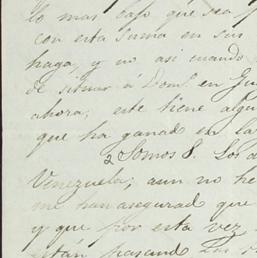 lo mas bajo que sea p
con esta suma en sus
haga, y no asi cuando
de situar á Dom.º en Gu
ahora; este tiene algu
que ha ganad en la
2 Somos 8. Los d
Venezuela; aun no he
me han asegurad que
y que por esta vez
están pasand Las